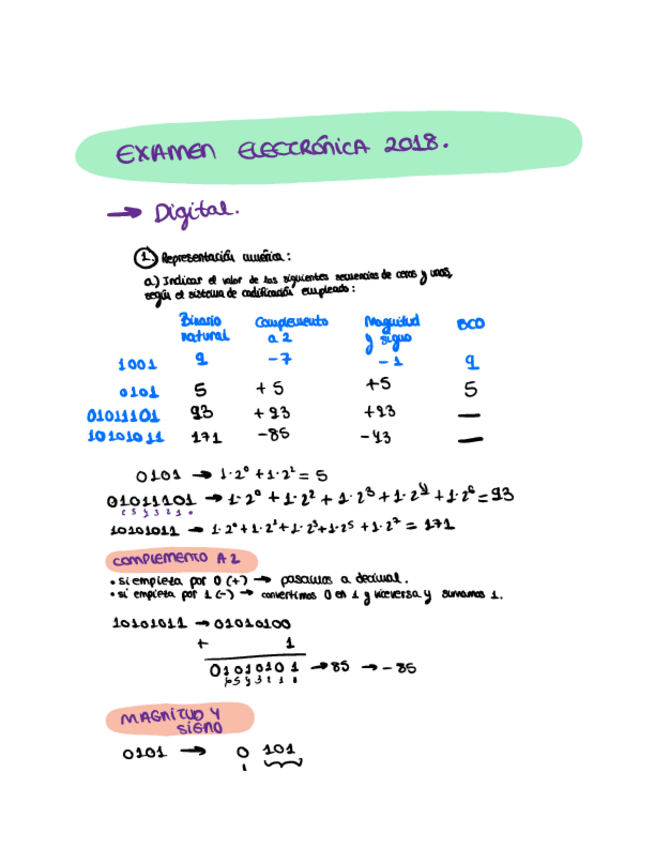 EXAMEN ELECTRÓNICA 2018.
→ Digital.
1. Representación numérica:
a) Indicar el valor de las siguientes secuencias de ceros y unos,
según el sistema de codificación empleado:
Binario natural Complemento a 2 Magnitud y signo BCD
1001 9 -7 -1 9
0101 5 +5 +5 5
01011101 93 +93 +93 —
10101011 171 -85 -43 —
0101 → 1·2⁰ + 1·2² = 5
01011101 → 1·2⁰ + 1·2² + 1·2³ + 1·2⁴ + 1·2⁶ = 93
6 5 4 3 2 1 0
10101011 → 1·2⁰ + 1·2¹ + 1·2³ + 1·2⁵ + 1·2⁷ = 171
COMPLEMENTO A 2
• si empieza por 0 (+) → pasamos a decimal.
• si empieza por 1 (-) → convertimos 0 en 1 y viceversa y sumamos 1.
10101011 → 01010100
+ 1
01010101 → 85 → -85
MAGNITUD Y
SIGNO
0101 → 0 101